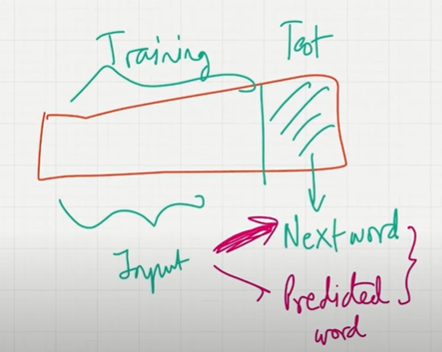 Training
Test
Input
Next word
Predicted
word